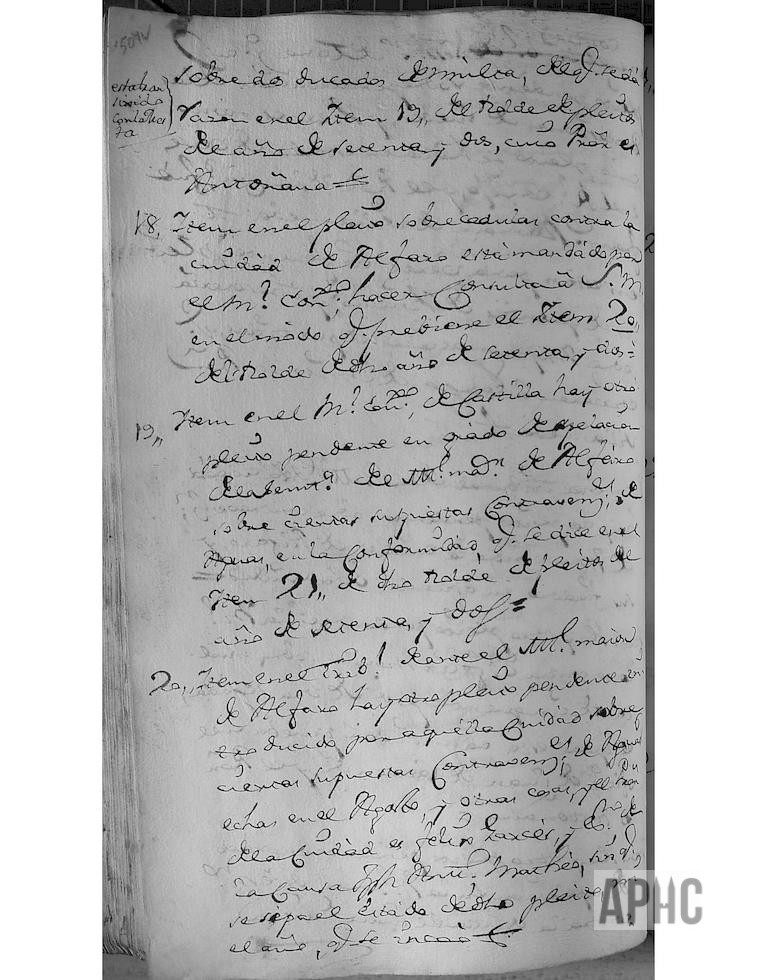 150v
estaban
sobre dos ducados de multa, de q. se da
razon en el Item 19,, del Rolde de pleitos
del año de setenta y dos, cuio Prōr es
Antoñana
18,, Item en el pleito sobre cedulas contra la
ciudad de Alfaro está mandado por
el R.l Con.o, hacer Consulta á S. M.
en el modo q. previene el Item 20,,
del Rolde de dho año de setenta y dos=
19,, Item en el R.l Con.o, de Castilla hay otro
pleito pendente en grado de apelacion
de la sent.a del Al.l ma.r de Alfaro
sobre ciertas supuestas Contraven.es de
Aguas, en la Conformidad, q. se dice en el
Item 21,, de dho Rolde de pleitos del
año de setenta, y dos=
20,, Item en el Trib.l de ante el Al.l maior
de Alfaro hay otro pleito pendente in
troducido por aquella Ciudad sobre
ciertas supuestas Contraven.es de Aguas
echas en el Agosto, y otras cosas, y el Prōr
de la Ciudad es Felix Garcés, y Es.no de
la Causa Jph Ant.o Matheo, sin q.
se sepa el estado de dho pleito, ni
el año, q. se incoó
APHC